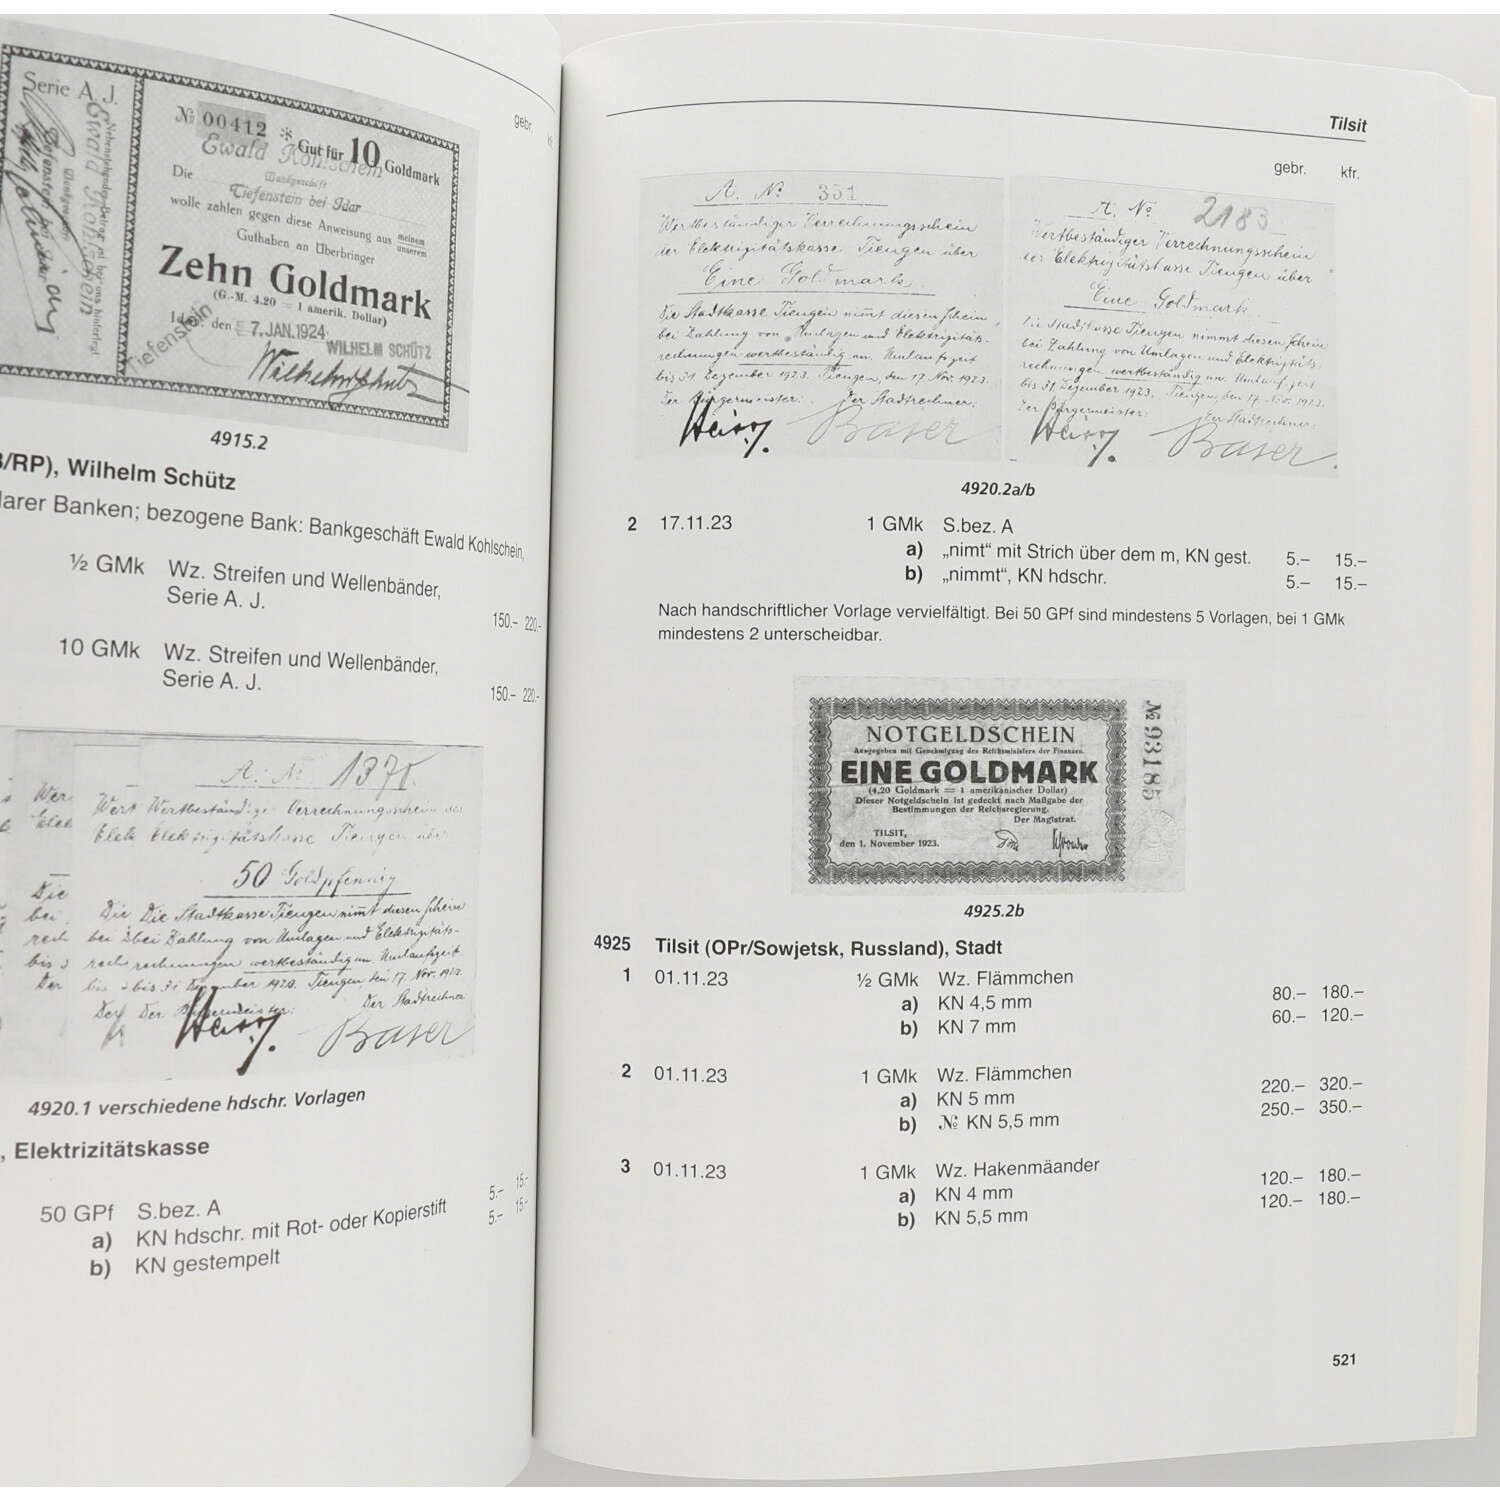 Serie A. J.
№ 00412
Gut für 10 Goldmark
Ewald Kohlschein
Bankgeschäft
Die
Tiefenstein bei Idar
wolle zahlen gegen diese Anweisung aus meinem unserem
Guthaben an Überbringer
Zehn Goldmark
(G.-M. 4.20 = 1 amerik. Dollar)
den 7. JAN. 1924
Tiefenstein
WILHELM SCHÜTZ
gebr.
4915.2
/RP), Wilhelm Schütz
larer Banken; bezogene Bank: Bankgeschäft Ewald Kohlschein,
½ GMk Wz. Streifen und Wellenbänder,
Serie A. J.
150.– 220.–
10 GMk Wz. Streifen und Wellenbänder,
Serie A. J.
150.– 220.–
A. №
Wertbeständiger Verrechnungsschein der
Elektrizitätskasse Tiengen über
50 Goldpfennig
Die Stadtkasse Tiengen nimmt diesen Schein
bei Zahlung von Umlagen und Elektrizitäts-
rechnungen wertbeständig an. Umlaufszeit
bis 31 Dezember 1923. Tiengen, den 17. Nov. 1923.
Der Bürgermeister: Der Stadtrechner:
4920.1 verschiedene hdschr. Vorlagen
, Elektrizitätskasse
50 GPf S.bez. A
a) KN hdschr. mit Rot- oder Kopierstift 5.– 15.–
b) KN gestempelt 5.– 15.–
Tilsit
gebr. kfr.
A. № 351
Wertbeständiger Verrechnungsschein
der Elektrizitätskasse Tiengen über
Eine Goldmark.
Die Stadtkasse Tiengen nimt diesen Schein
bei Zahlung von Umlagen und Elektrizitäts-
rechnungen wertbeständig an. Umlaufszeit
bis 31 Dezember 1923. Tiengen, den 17 Nov. 1923.
Der Bürgermeister: Der Stadtrechner:
A. № 2183
Wertbeständiger Verrechnungsschein
der Elektrizitätskasse Tiengen über
Eine Goldmark
Die Stadtkasse Tiengen nimmt diesen Schein
bei Zahlung von Umlagen und Elektrizitäts-
rechnungen wertbeständig an. Umlaufszeit
bis 31. Dezember 1923. Tiengen, den 17. Nov. 1923.
Der Bürgermeister: Der Stadtrechner:
4920.2a/b
2 17.11.23 1 GMk S.bez. A
a) „nimt“ mit Strich über dem m, KN gest. 5.– 15.–
b) „nimmt“, KN hdschr. 5.– 15.–
Nach handschriftlicher Vorlage vervielfältigt. Bei 50 GPf sind mindestens 5 Vorlagen, bei 1 GMk
mindestens 2 unterscheidbar.
NOTGELDSCHEIN
Ausgegeben mit Genehmigung des Reichsministers der Finanzen.
EINE GOLDMARK
(4,20 Goldmark = 1 amerikanischer Dollar)
Dieser Notgeldschein ist gedeckt nach Maßgabe der
Bestimmungen der Reichsregierung.
Der Magistrat.
TILSIT,
den 1. November 1923.
№ 93185
4925.2b
4925 Tilsit (OPr/Sowjetsk, Russland), Stadt
1 01.11.23 ½ GMk Wz. Flämmchen
a) KN 4,5 mm 80.– 180.–
b) KN 7 mm 60.– 120.–
2 01.11.23 1 GMk Wz. Flämmchen
a) KN 5 mm 220.– 320.–
b) № KN 5,5 mm 250.– 350.–
3 01.11.23 1 GMk Wz. Hakenmäander
a) KN 4 mm 120.– 180.–
b) KN 5,5 mm 120.– 180.–
521